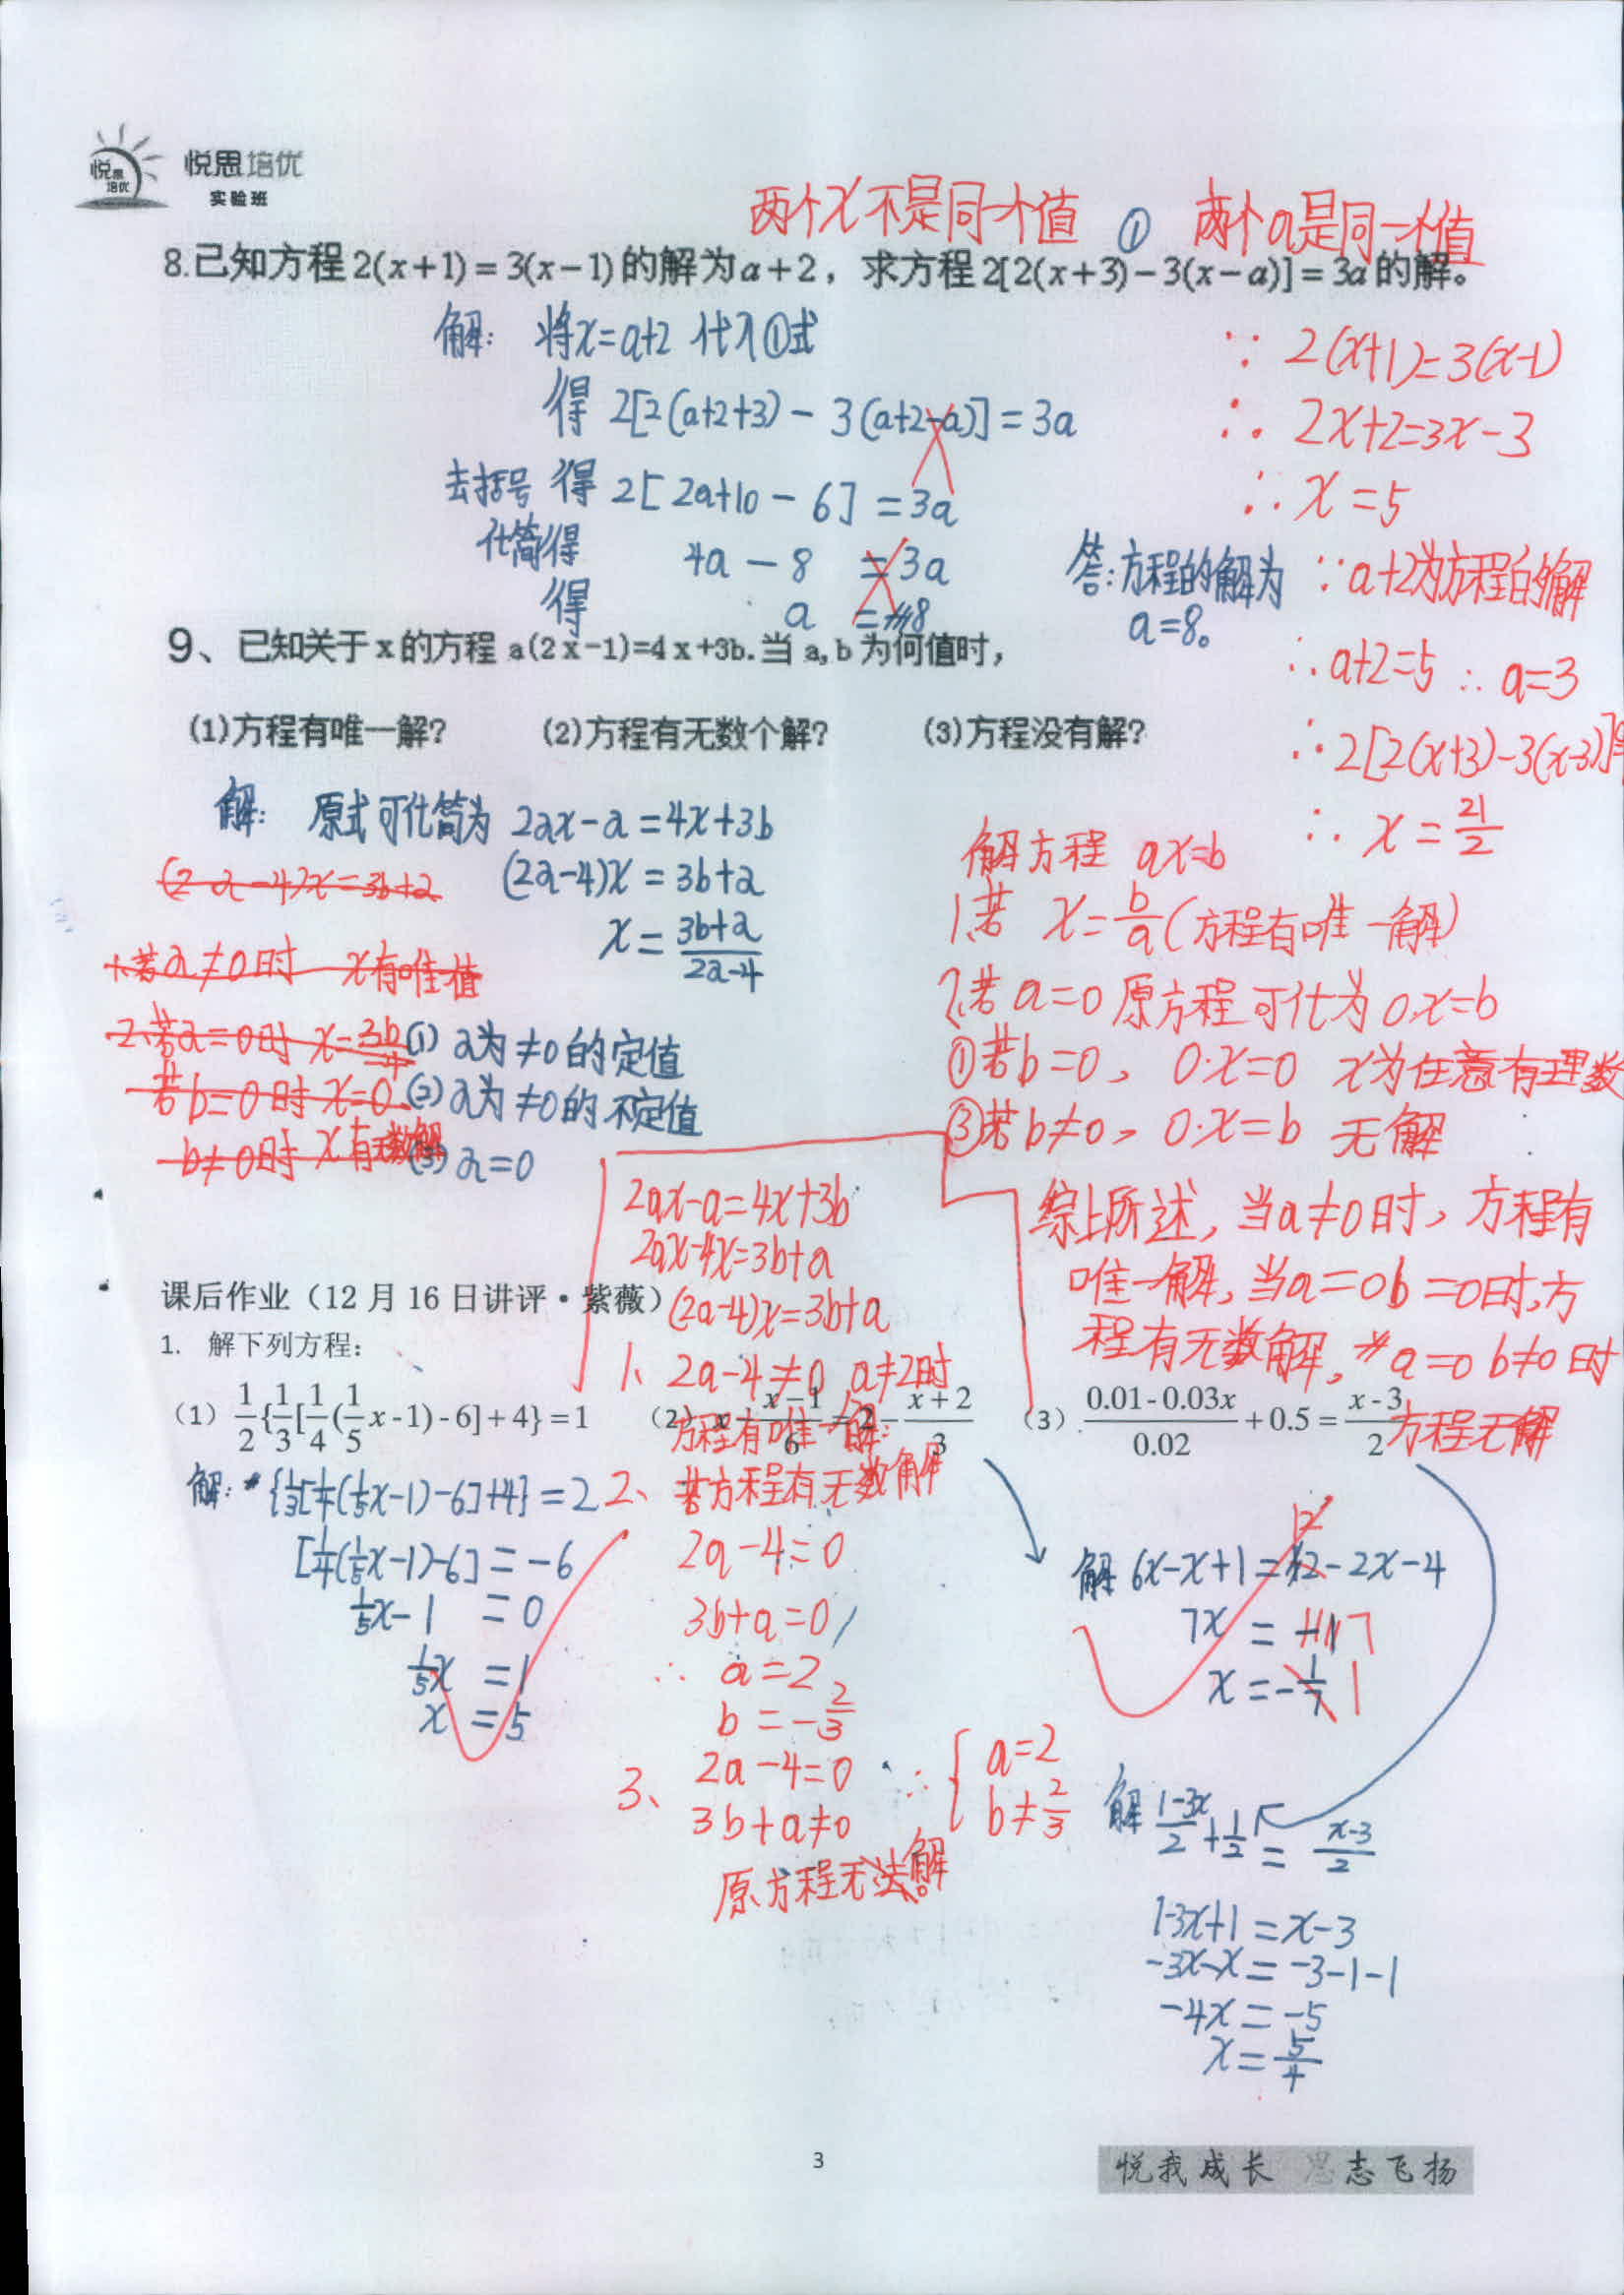 悦思培优
悦思培优
实验班
两个x不是同一个值 ① 两个a是同一个值
8.已知方程2(x+1)=3(x-1)的解为a+2，求方程2[2(x+3)-3(x-a)]=3a的解。
解: 将x=a+2 代入①式
得 2[2(a+2+3)-3(a+2-a)]=3a
去括号 得 2[2a+10-6]=3a
化简得 4a-8=3a
得 a=8
答:方程的解为
a=8。
∵ 2(x+1)=3(x-1)
∴ 2x+2=3x-3
∴ x=5
∵a+2为方程的解
∴a+2=5 ∴a=3
∴2[2(x+3)-3(x-3)]
∴ x=21/2
9、已知关于x的方程 a(2x-1)=4x+3b.当a,b为何值时，
(1)方程有唯一解? (2)方程有无数个解? (3)方程没有解?
解: 原式可化简为 2ax-a=4x+3b
(2a-4)x=3b+a
x=(3b+a)/(2a-4)
(2a-4)x=3b+a
1.若a≠0时 x有唯值
2.若a=0时 x=3b/4
若b=0时 x=0
b≠0时 x有无数解
(1) a为≠0的定值
(2) a为≠0的不定值
(3) a=0
解方程 ax=b
1.若 x=b/a(方程有唯一解)
2.若a=0原方程可化为0.x=b
①若b=0，0·x=0 x为任意有理数
③若b≠0，0·x=b 无解
综上所述,当a≠0时，方程有
唯一解,当a=0b=0时,方
程有无数解,a=0 b≠0时
方程无解
2ax-a=4x+3b
2ax-4x=3b+a
(2a-4)x=3b+a
1、2a-4≠0 a≠2时
方程有唯一解.
2、若方程有无数解
2a-4=0
3b+a=0
∴ a=2
b=-2/3
3、2a-4=0
3b+a≠0
∴{a=2
b≠2/3
原方程无法解。
课后作业（12月16日讲评·紫薇）
1. 解下列方程：
（1）1/2{1/3[1/4(1/5x-1)-6]+4}=1 （2）x-(x-1)/6=2-(x+2)/3 （3）(0.01-0.03x)/0.02+0.5=(x-3)/2
解: {1/3[1/4(1/5x-1)-6]+4}=2
[1/4(1/5x-1)-6]=-6
1/5x-1=0
1/5x=1
x=5
12
解 6x-x+1=12-2x-4
7x=7
x=-1/7 1
解 (1-3x)/2+1/2=(x-3)/2
1-3x+1=x-3
-3x-x=-3-1-1
-4x=-5
x=5/4
3
悦我成长 思志飞扬